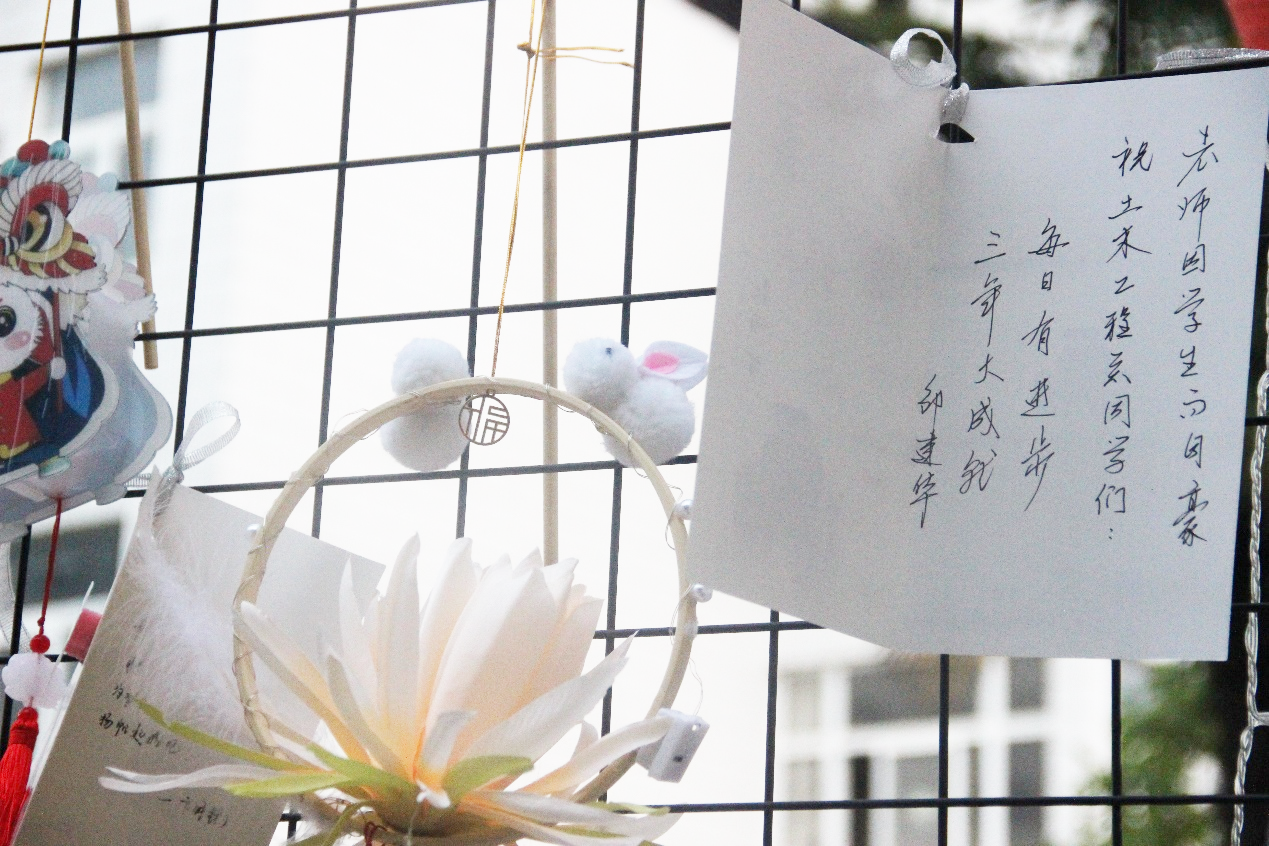 老师因学生而自豪
祝土木工程系同学们:
每日有进步
三年大成就
邱建华
福
扬帆起航吧